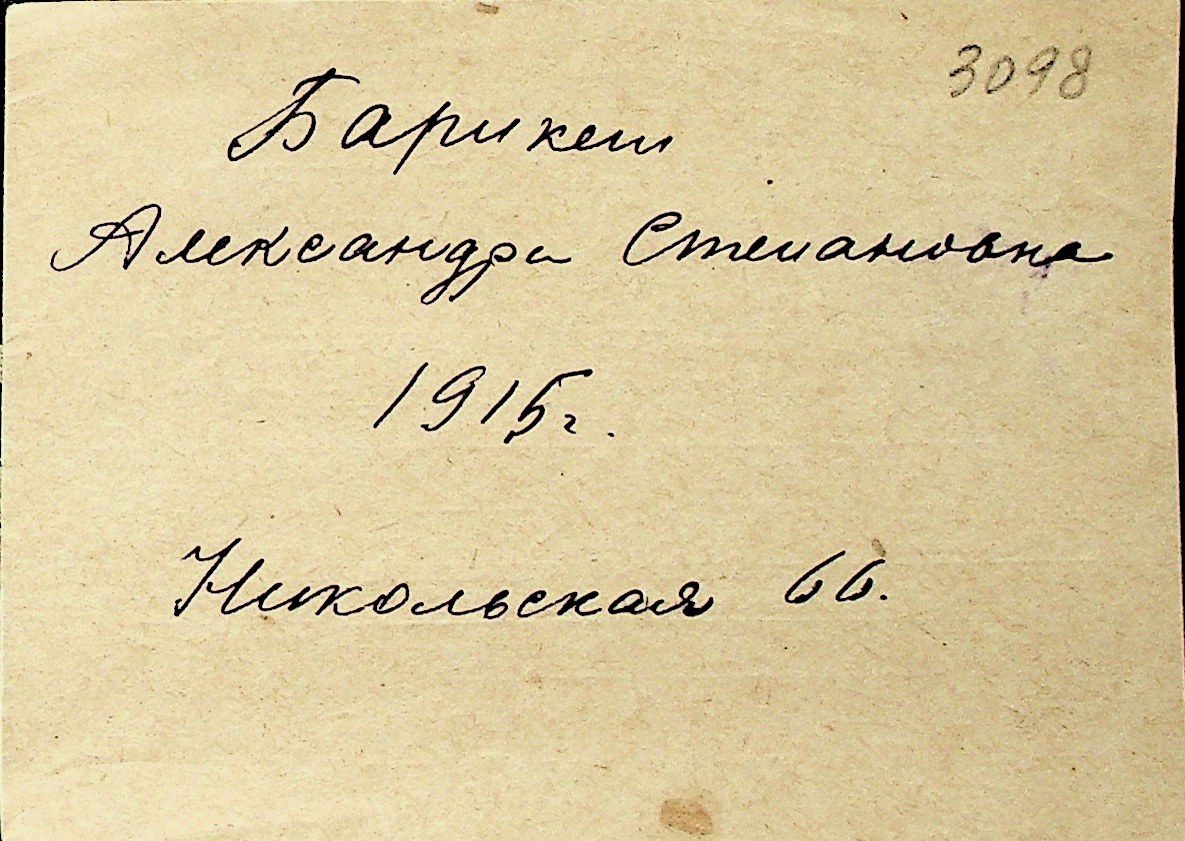 3098
Барикеш
Александра Степановна
1915 г.
Никольская 66.